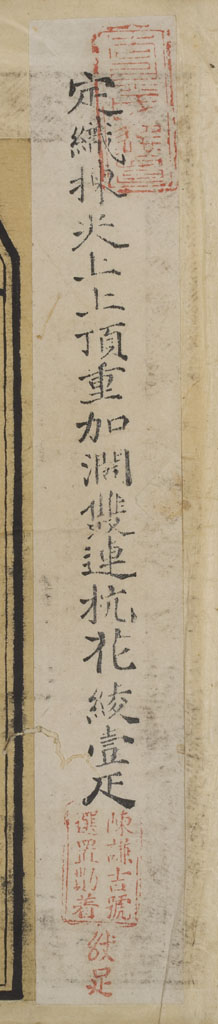 定織揀尖上上頂重加濶雙連杭花綾壹疋
陳謙吉號
選置助着